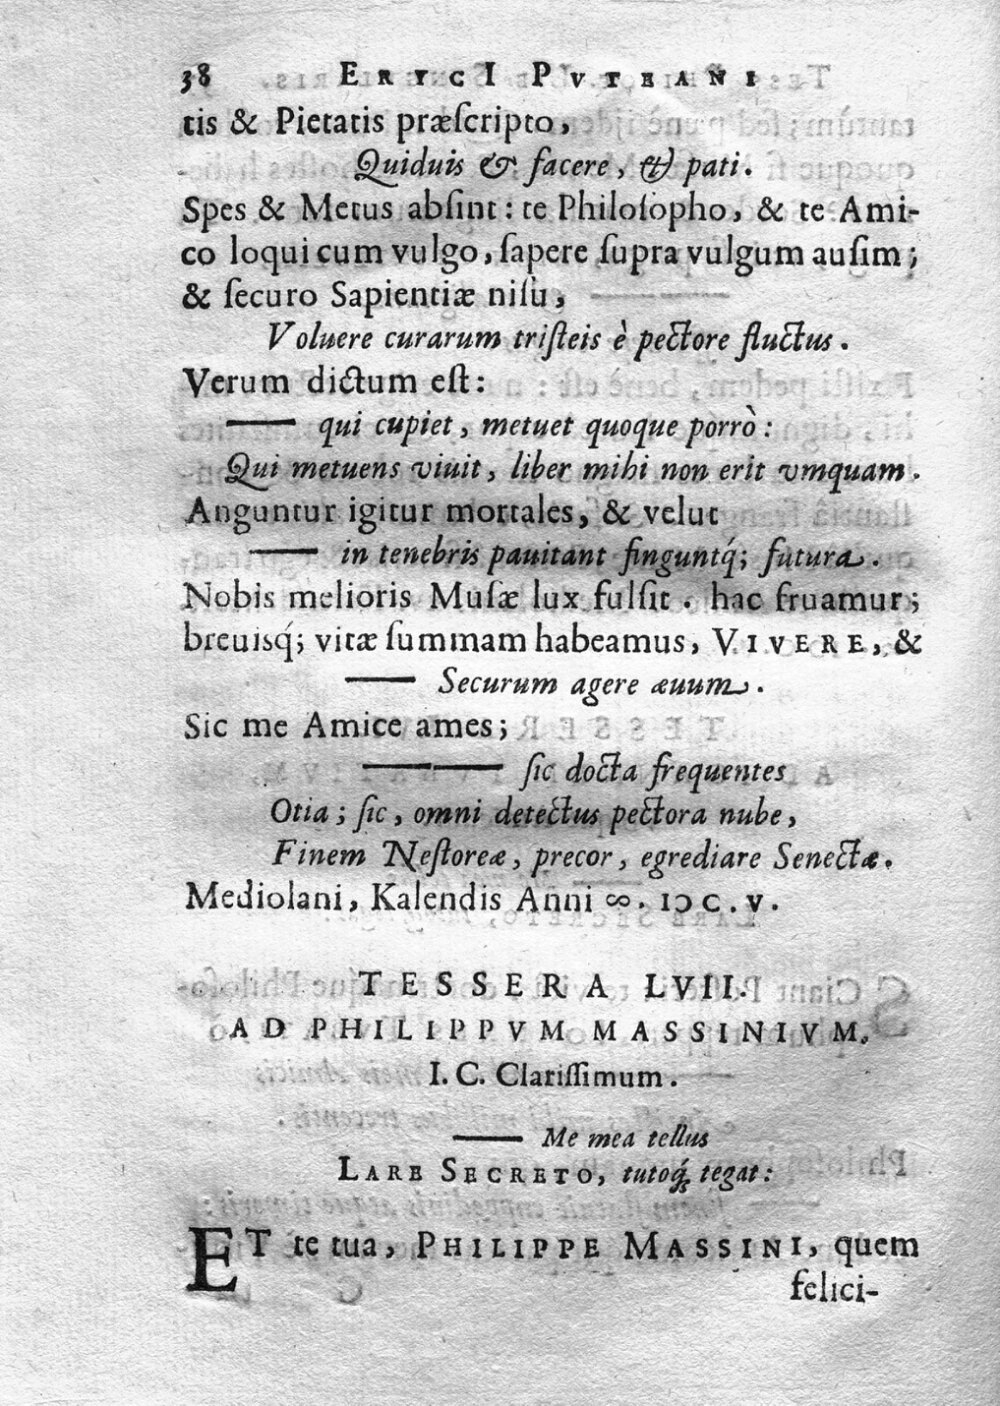 38 ERYCI PVTEANI
tis & Pietatis præſcripto,
Quiduis & facere, & pati.
Spes & Metus abſint: te Philoſopho, & te Ami-
co loqui cum vulgo, ſapere ſupra vulgum auſim;
& ſecuro Sapientiæ niſu,
Voluere curarum triſteis è pectore fluctus.
Verum dictum eſt:
—— qui cupiet, metuet quoque porrò:
Qui metuens viuit, liber mihi non erit vmquam.
Anguntur igitur mortales, & velut
—— in tenebris pauitant finguntq́; futura.
Nobis melioris Muſæ lux fulſit. hac fruamur;
breuisq́; vitæ ſummam habeamus, VIVERE, &
—— Securum agere æuum.
Sic me Amice ames;
———— ſic docta frequentes
Otia; ſic, omni detectus pectora nube,
Finem Neſtoreæ, precor, egrediare Senectæ.
Mediolani, Kalendis Anni ∞. IↃC.V.
TESSERA LVII.
AD PHILIPPVM MASSINIVM,
I. C. Clariſſimum.
—— Me mea tellus
LARE SECRETO, tutoq́; tegat:
ET te tua, PHILIPPE MASSINI, quem
felici-